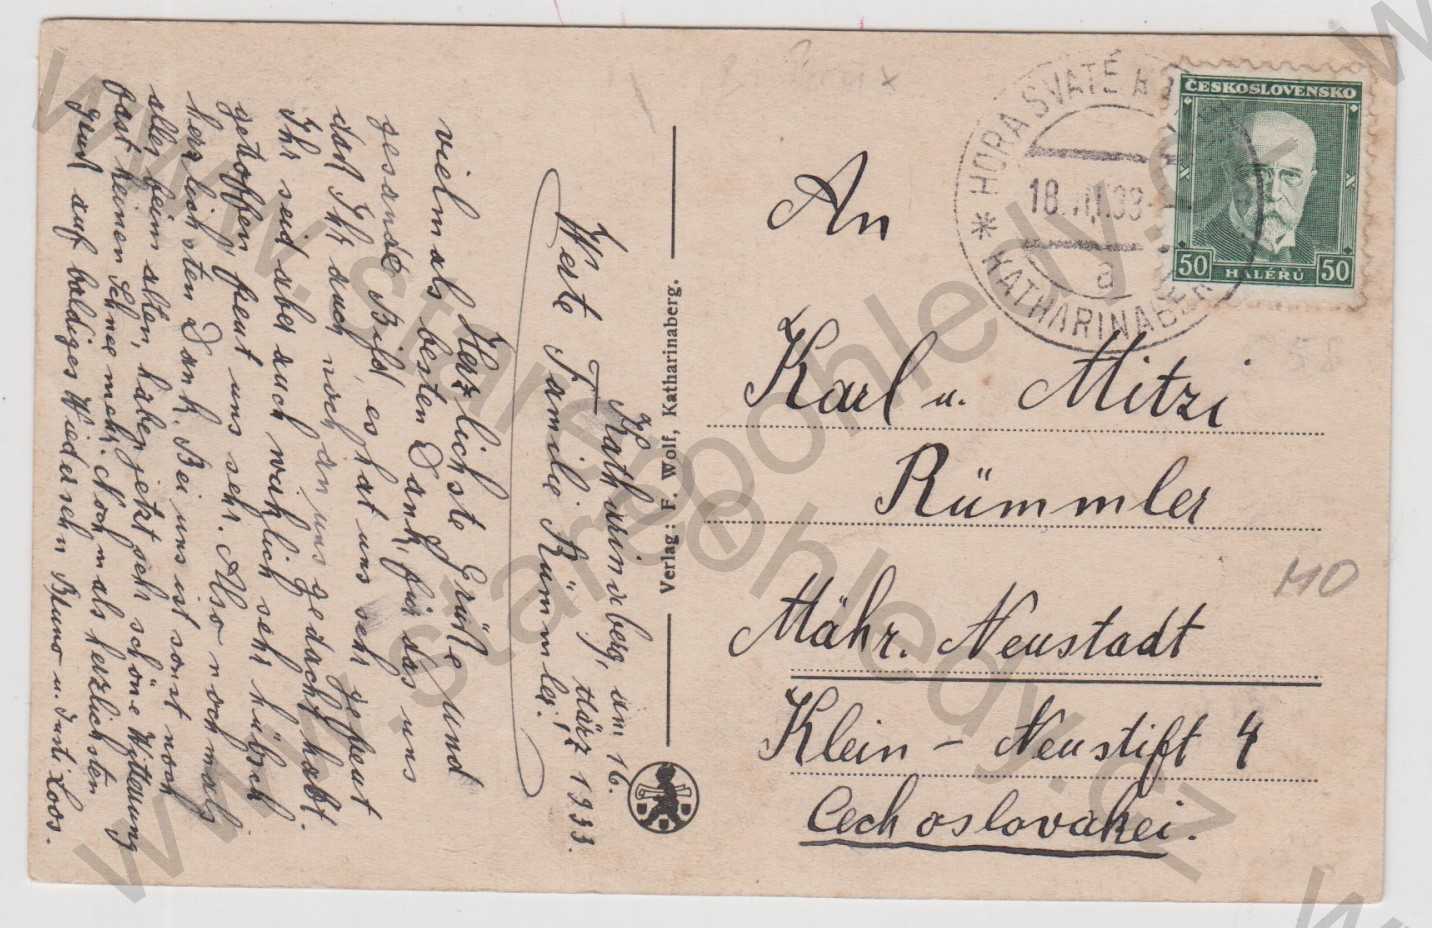 Katharinaberg, am 16.
März 1933.
Werte Familie Rümmler!
Herzlichste Grüße und
vielmals besten Dank, für das uns
gesandte Bild, es hat uns sehr gefreut
daß Ihr auch noch an uns gedacht habt.
Ihr seid aber auch wirklich sehr hübsch
getroffen, freut uns sehr. Also nochmals
herzlichsten Dank. Bei uns ist sonst noch
alles beim alten, haben jetzt sehr schöne Witterung
fast keinen Schnee mehr. Nochmals herzlichsten
Gruß auf baldiges Wiedersehn Bruno u. Loos.
Verlag: F. Wolf, Katharinaberg.
An
Karl u. Mitzi
Rümmler
Mähr. Neustadt
Klein - Neustift 4
Cechoslovakei.
HORA SVATÉ
18. 33
a
KATHARINABER
ČESKOSLOVENSKO
50 HALÉRŮ 50
MO
www.starepohledy.cz
www.starepohledy.cz